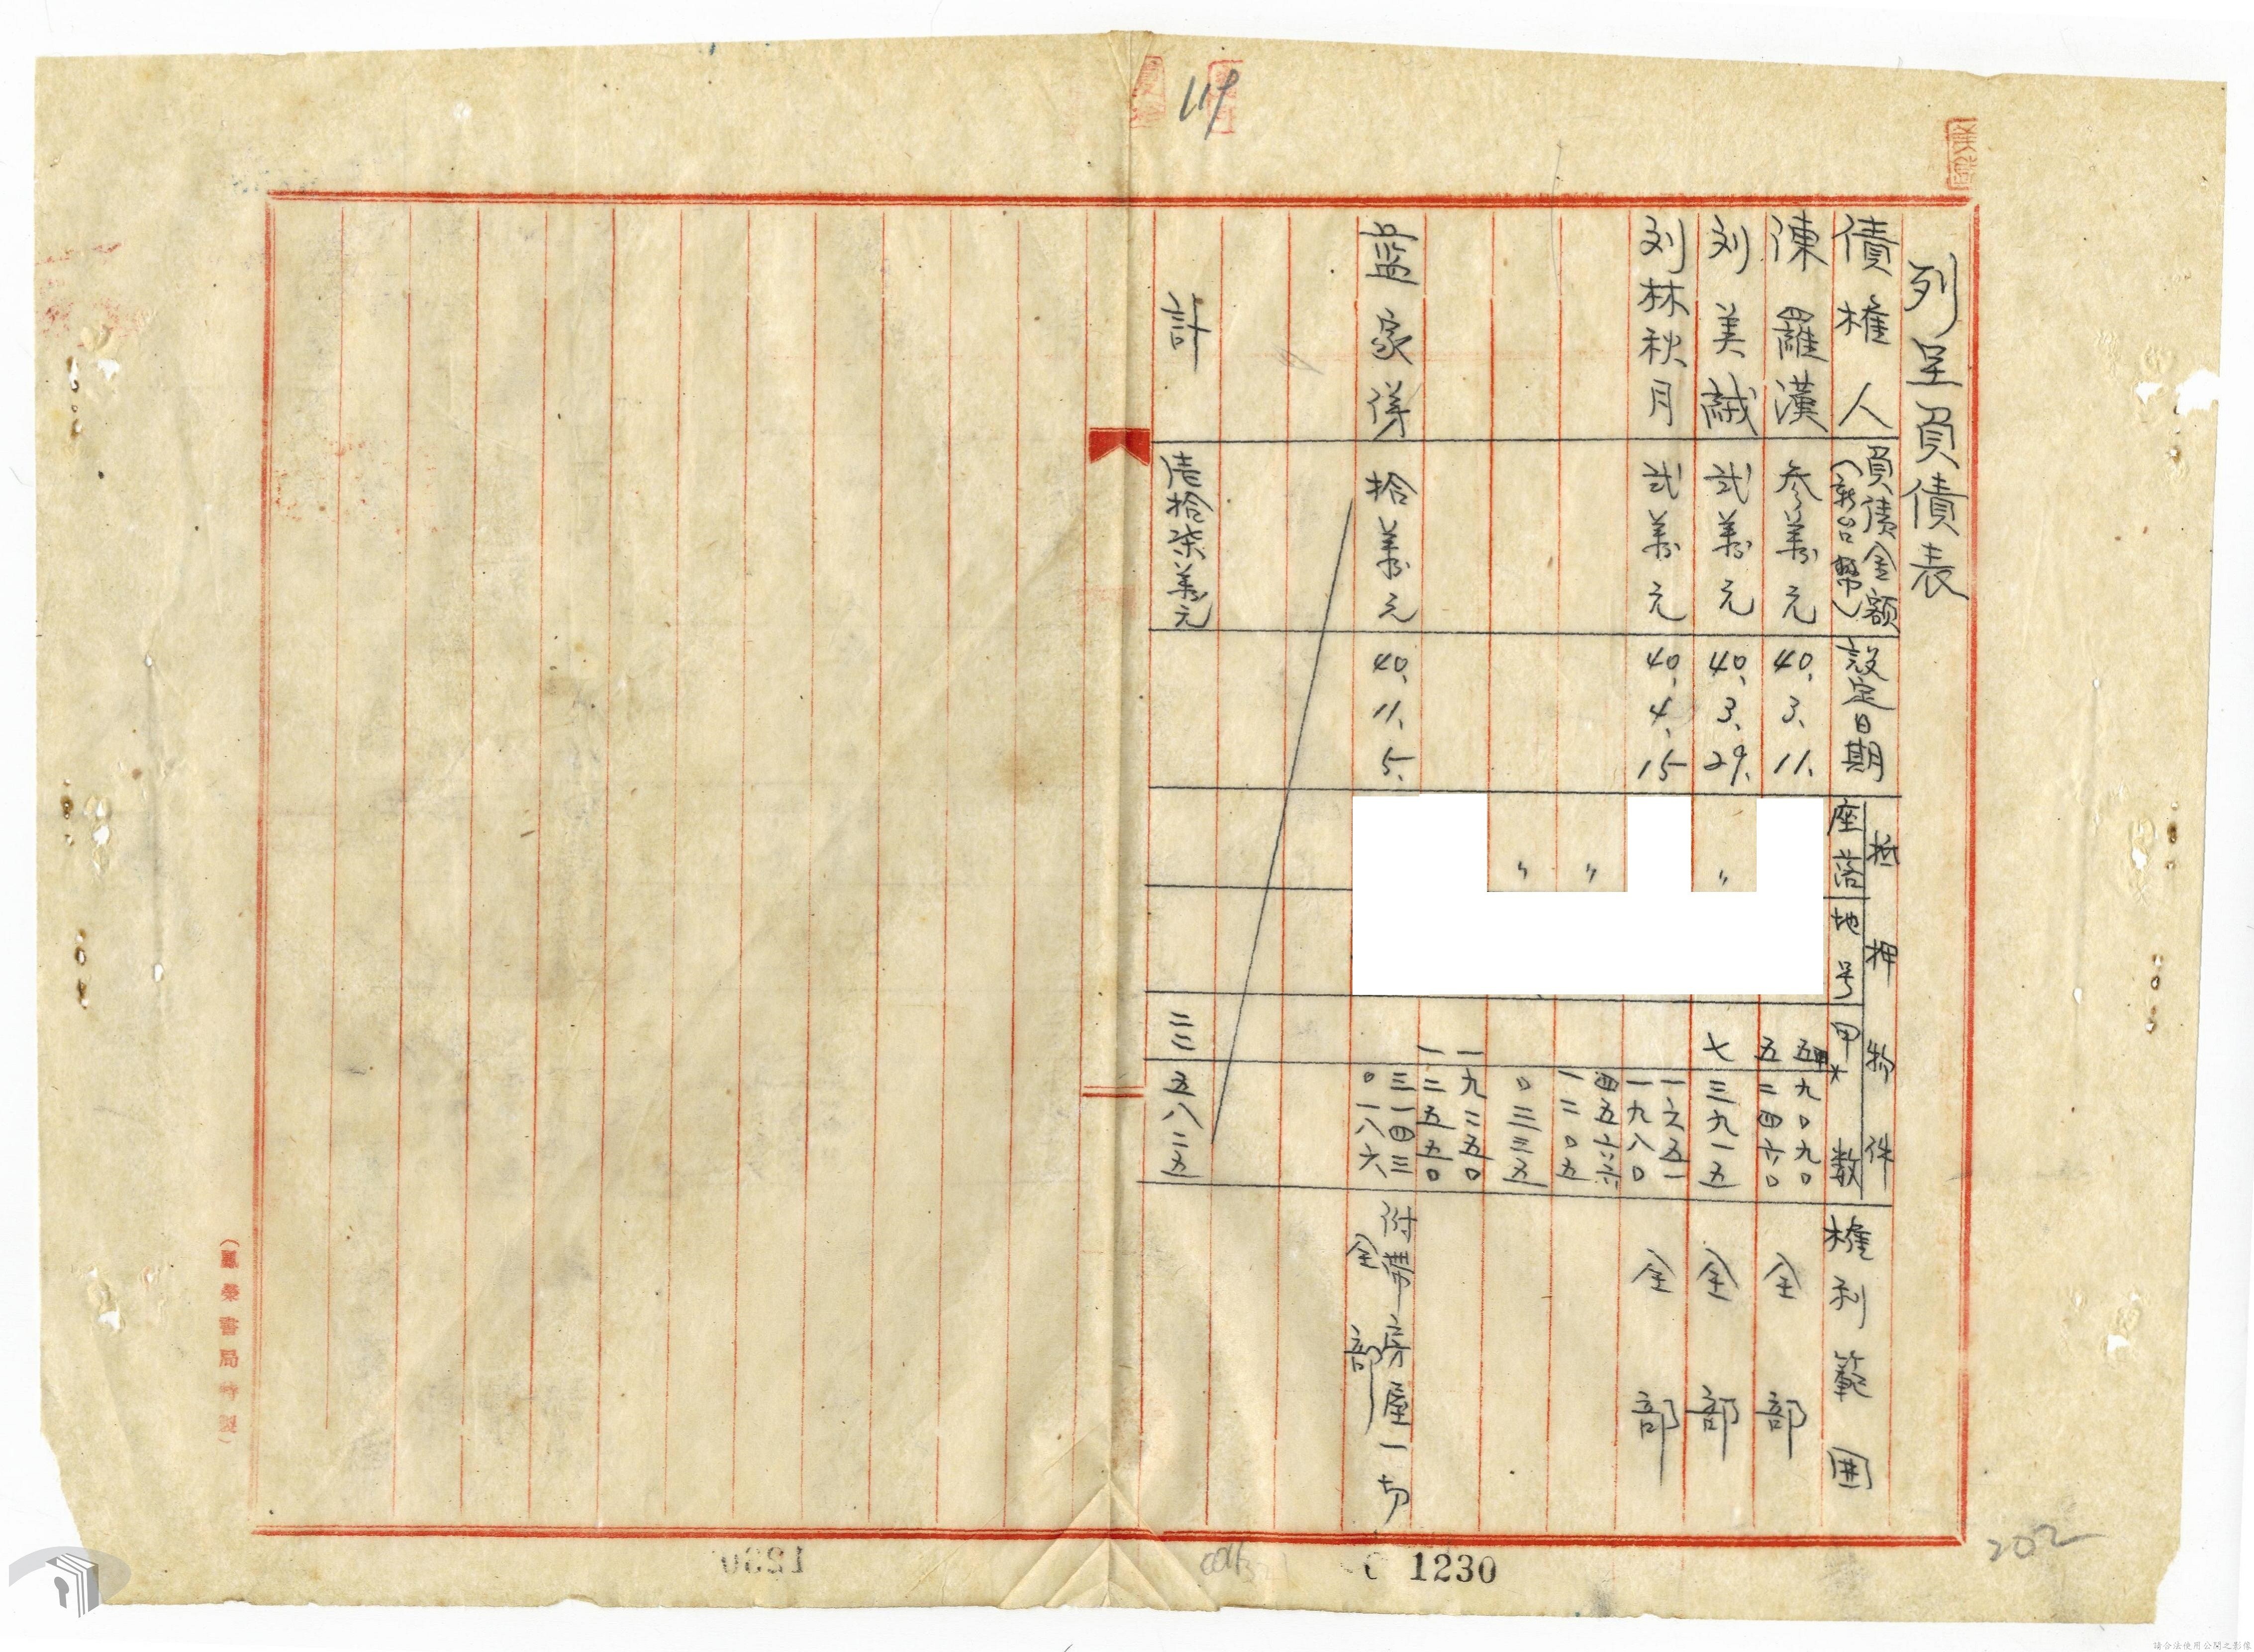 列呈負債表
債權人 負債金額(新台幣) 設定日期 抵押物件 座落 地号 甲数 權利範囲
陳羅漢 参萬元 40、3、11、 五甲九〇九〇 全部
五二四六〇
刘美誠 弍萬元 40、3、29、 〃 七三九一五 全部
刘林秋月 弍萬元 40、4、15 一六五一 全部
一九八〇
四五六六
〃 一二〇五
〃 〇三三五
一九二五〇
一二五五〇
藍家傳 拾萬元 40、11、5、 三一四三 附帶房屋一切
〇一八六 全部
計 壱拾柒萬元 二三五八二五
(鳳榮書局特製)
119
202
1230
請合法使用公開之影像